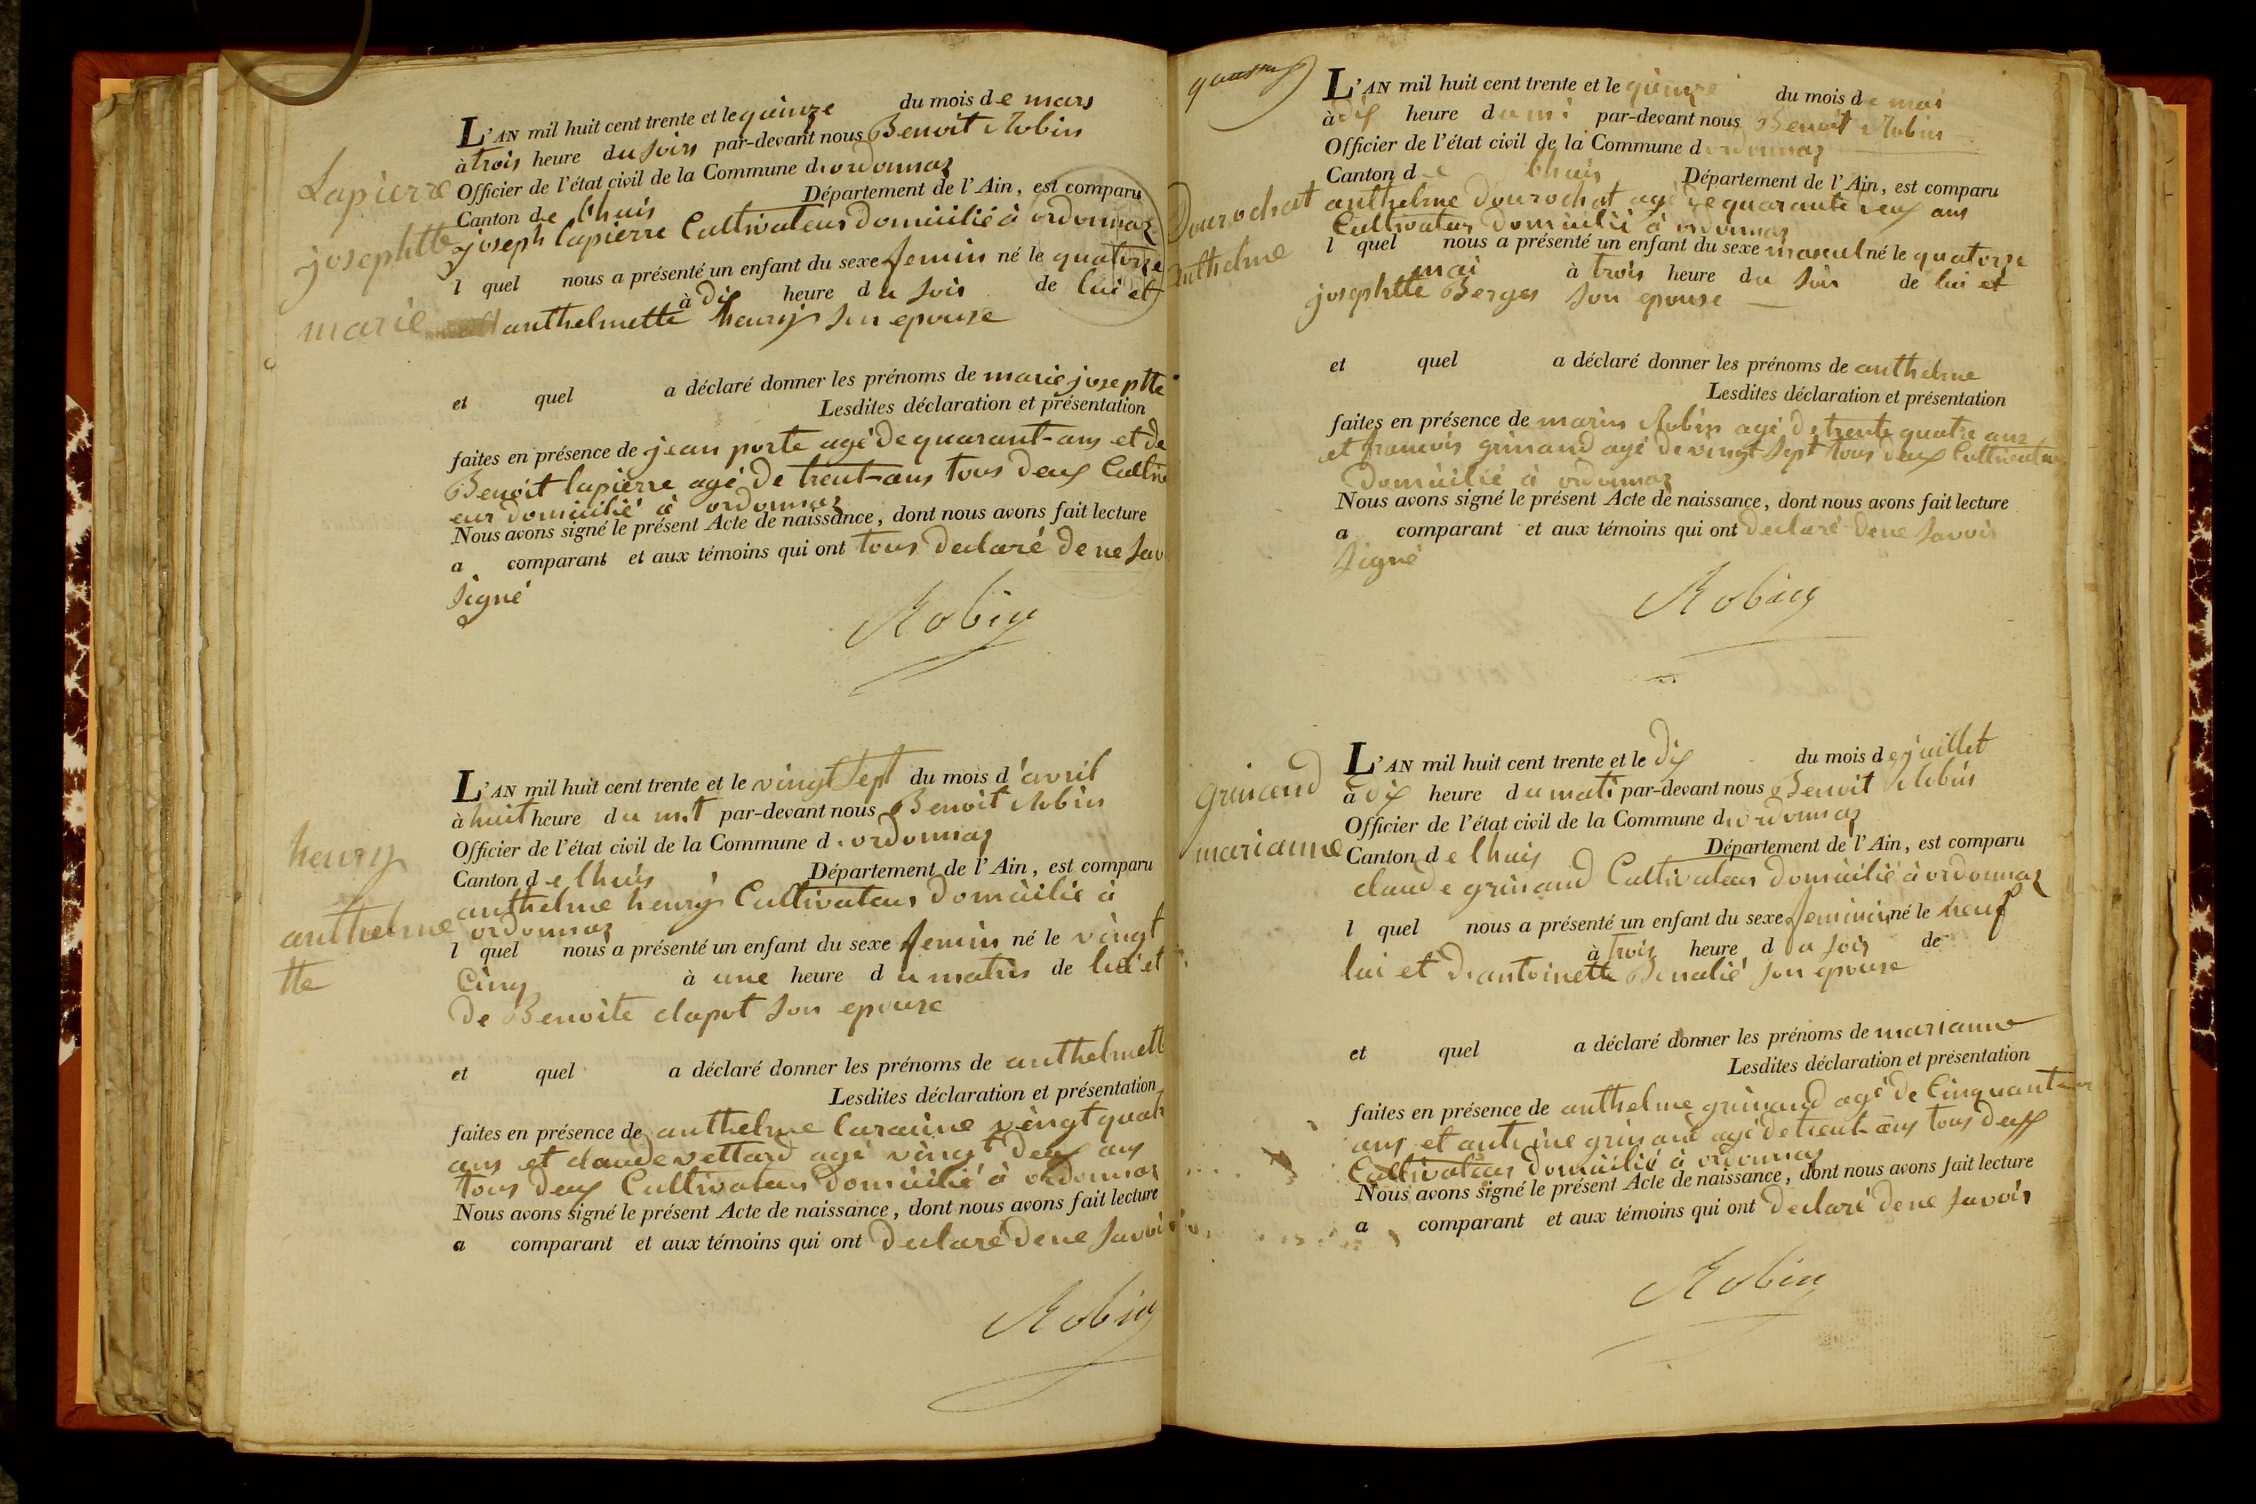 Lapierre
josephtte
marie
L'AN mil huit cent trente et le quinze du mois de mars
à trois heure du soirs par-devant nous Benoit Robin
Officier de l'état civil de la Commune d'ordonnaz
Canton de lhuis Département de l'Ain, est comparu
joseph lapierre Cultivateur domicilié à ordonnaz
l quel nous a présenté un enfant du sexe femin né le quatorze
à dix heure du soir de lui et
anthelmette henry son epouse
et quel a déclaré donner les prénoms de marie joseptte
Lesdites déclaration et présentation
faites en présence de jean porte agé de quarant-ans et de
Benoit lapierre agé de trent-ans tous deux Cultiv
eur domicilié à ordonnaz
Nous avons signé le présent Acte de naissance, dont nous avons fait lecture
a comparant et aux témoins qui ont tous declaré de ne sav
signé
Robin
henry
anthelme
tte
L'AN mil huit cent trente et le vingt sept du mois d'avril
à huit heure du mat par-devant nous Benoit Robin
Officier de l'état civil de la Commune d'ordonnaz
Canton de lhuis Département de l'Ain, est comparu
anthelme henry Cultivateur domicilié à
ordonnaz
l quel nous a présenté un enfant du sexe femin né le vingt
Cinq à une heure du matin de lui et
de Benoite clapot son epouse
et quel a déclaré donner les prénoms de anthelmett
Lesdites déclaration et présentation
faites en présence de anthelme vingt quat
ans et claude vettard agé vingt deux ans
tous deux Cultivateur domicilié à ordonnaz
Nous avons signé le présent Acte de naissance, dont nous avons fait lecture
a comparant et aux témoins qui ont declaré de ne savoi
Robin
Dourochat
anthelme
L'AN mil huit cent trente et le quinze du mois de mai
à dix heure du mi par-devant nous Benoit Robin
Officier de l'état civil de la Commune d'ordonnaz
Canton de lhuis Département de l'Ain, est comparu
anthelme dourochat agé de quarante deux ans
Cultivateur domicilié à ordonnaz
l quel nous a présenté un enfant du sexe mascul né le quatorze
mai à trois heure du soir de lui et
josephtte Berger son epouse
et quel a déclaré donner les prénoms de anthelme
Lesdites déclaration et présentation
faites en présence de marin Robin agé de trente quatre ans
et francois grinand agé de vingt sept tous deux Cultivateur
domicilié à ordonnaz
Nous avons signé le présent Acte de naissance, dont nous avons fait lecture
a comparant et aux témoins qui ont declaré de ne savoir
signé
Robin
grinand
marianne
L'AN mil huit cent trente et le dix du mois de juillet
à dix heure du mati par-devant nous Benoit Robin
Officier de l'état civil de la Commune d'ordonnaz
Canton de lhuis Département de l'Ain, est comparu
claude grinand Cultivateur domicilié à ordonnaz
l quel nous a présenté un enfant du sexe feminin né le neuf
à trois heure du soir de
lui et d'antoinette son epouse
et quel a déclaré donner les prénoms de marianne
Lesdites déclaration et présentation
faites en présence de anthelme grinand agé de Cinquant
ans et grinand agé de trent-ans tous deux
Cultivateur domicilié à ordonnaz
Nous avons signé le présent Acte de naissance, dont nous avons fait lecture
a comparant et aux témoins qui ont declaré de ne savoir
Robin